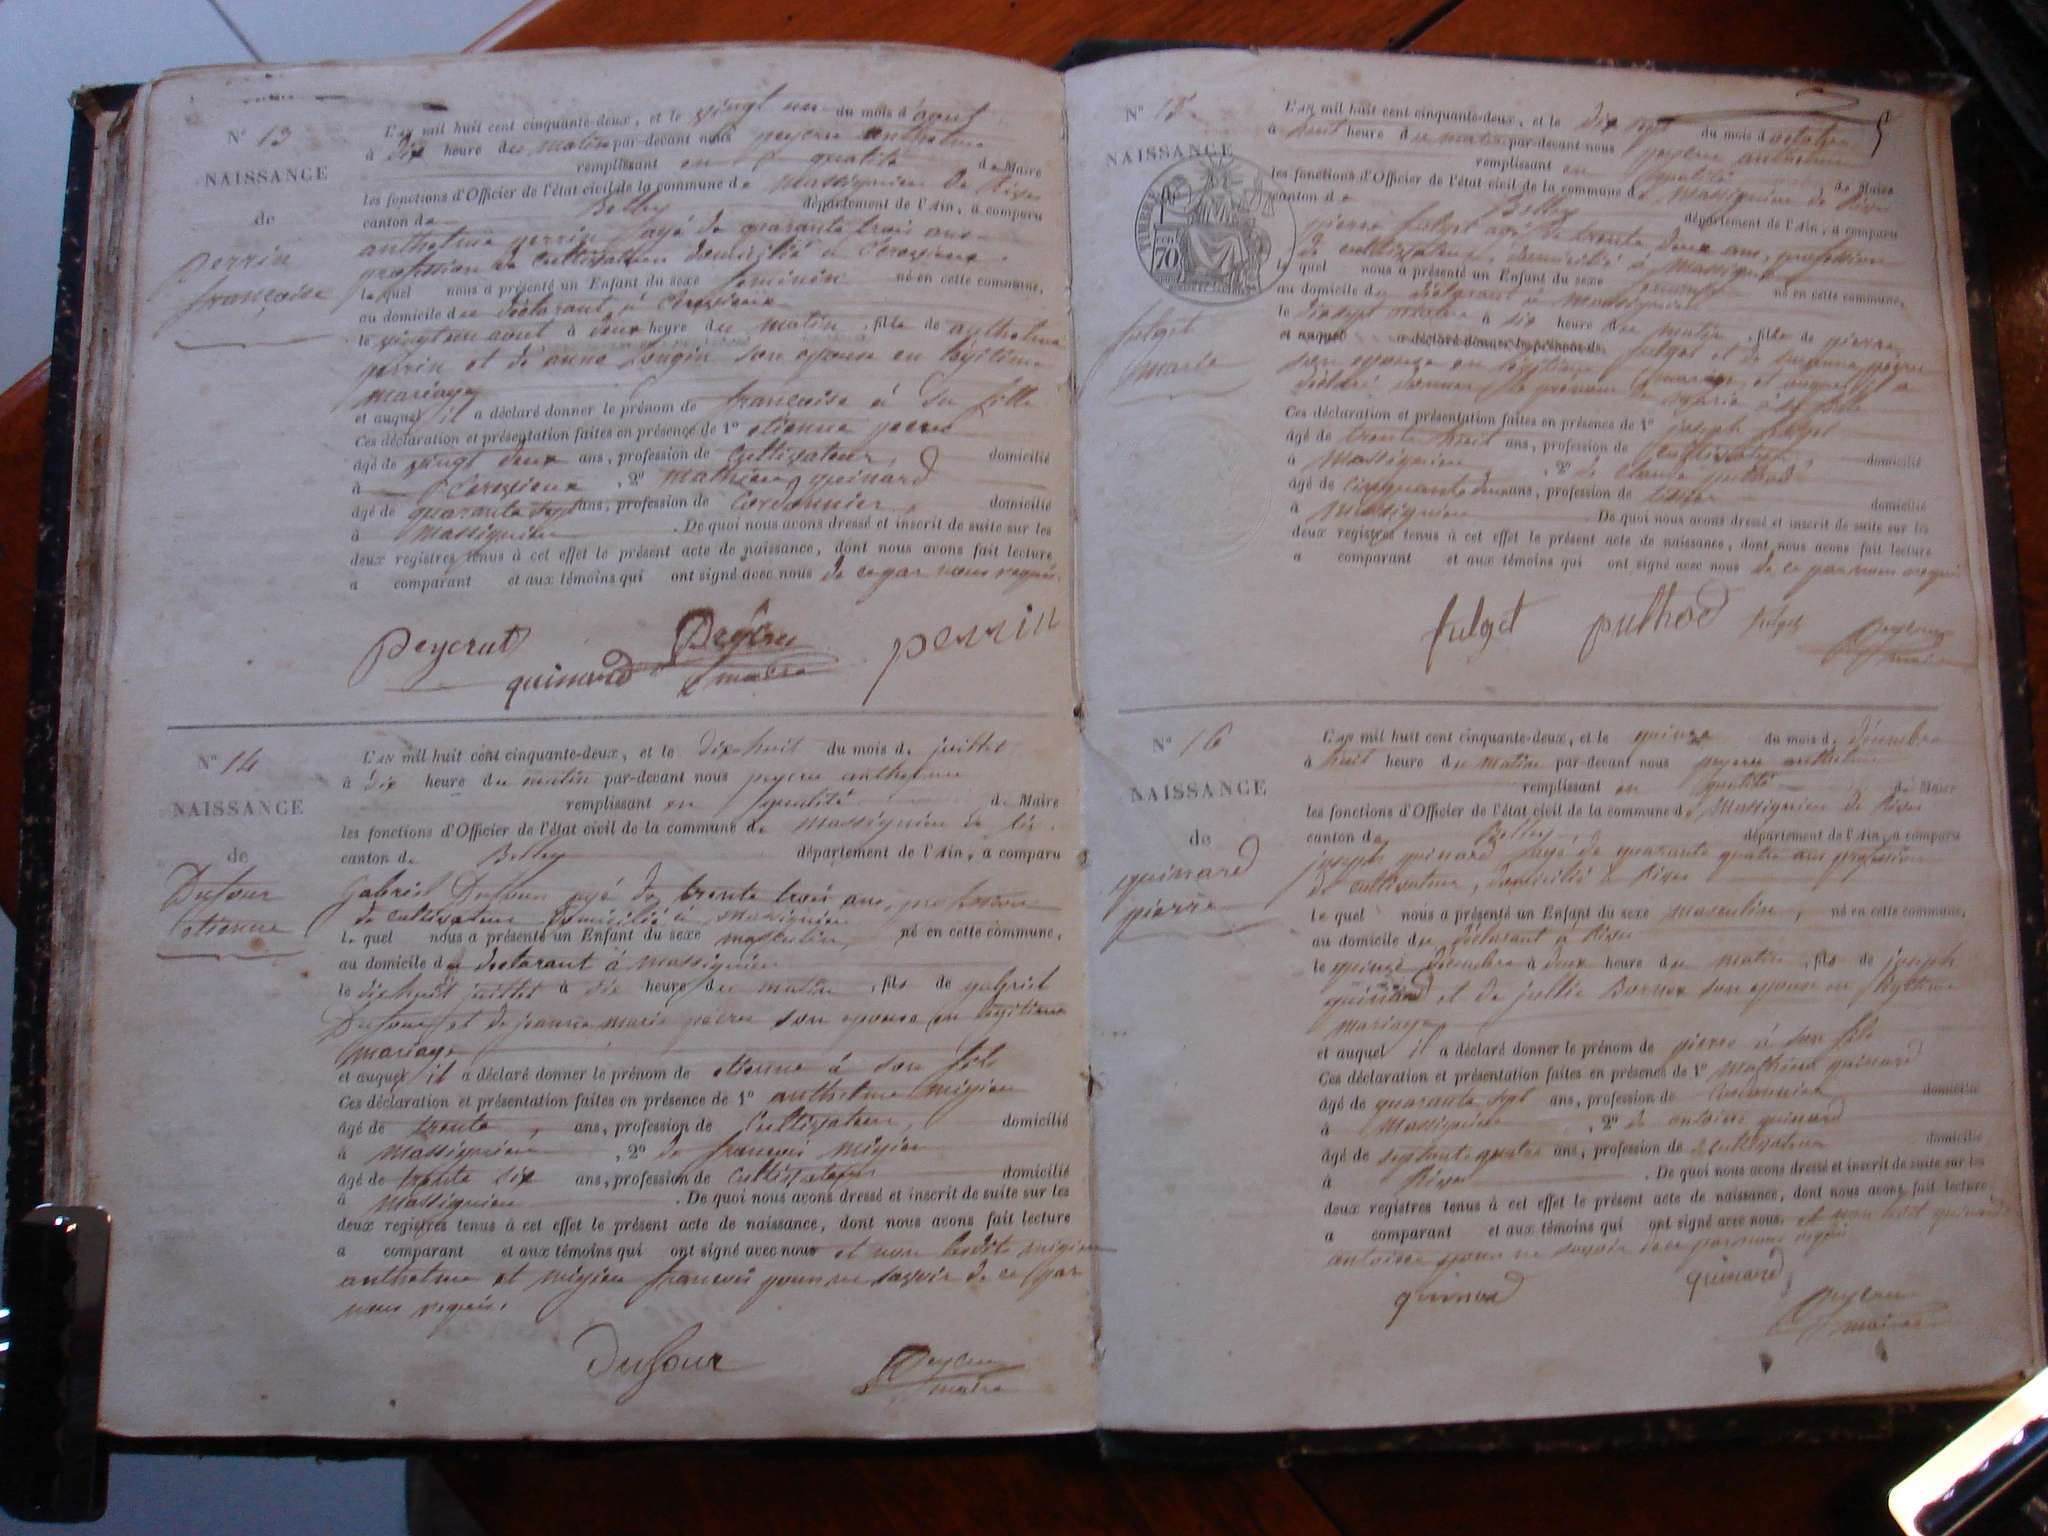 N° 13
NAISSANCE
de
perrin
françoise
L'AN mil huit cent cinquante-deux, et le vingt un du mois d'aout
à dix heure du matin par-devant nous peyeru anthelme
remplissant en qualité de Maire
les fonctions d'Officier de l'état civil de la commune de Massignieu de Rives
canton de Belley département de l'Ain, a comparu
anthelme perrin agé de quarante trois ans
profession de cultivateur domicilié à
le quel nous a présenté un Enfant du sexe feminin né en cette commune,
au domicile du déclarant à
le vingt un aout à deux heure du matin, fille de anthelme
perrin et de anne son epouse en légitime
mariage
et auquel il a déclaré donner le prénom de françoise à sa fille
Ces déclaration et présentation faites en présence de 1° etienne
âgé de vingt deux ans, profession de Cultivateur, domicilié
à , 2° mathieu quinard
âgé de quarante sept ans, profession de Cordonnier, domicilié
à Massignieu . De quoi nous avons dressé et inscrit de suite sur les
deux registres tenus à cet effet le présent acte de naissance, dont nous avons fait lecture
a comparant et aux témoins qui ont signé avec nous de ce par nous requis
Peycrut
quinard
maire
perrin
N° 14
NAISSANCE
de
Dufour
etienne
L'AN mil huit cent cinquante-deux, et le dix huit du mois de juillet
à dix heure du matin par-devant nous peyeru anthelme
remplissant en qualité de Maire
les fonctions d'Officier de l'état civil de la commune de Massignieu de
canton de Belley département de l'Ain, a comparu
Gabriel Dufour agé de trente trois ans, profession
de cultivateur domicilié à Massignieu
le quel nous a présenté un Enfant du sexe masculin, né en cette commune,
au domicile du declarant à Massignieu
le dix huit juillet à six heure du matin, fils de gabriel
Dufour et de jeanne marie son epouse en legitime
mariage
et auquel il a déclaré donner le prénom de etienne à son fils
Ces déclaration et présentation faites en présence de 1° anthelme migieu
âgé de trente, ans, profession de Cultivateur, domicilié
à Massignieu , 2° de francois migieu
âgé de trente six ans, profession de Cultivateur domicilié
à Massignieu . De quoi nous avons dressé et inscrit de suite sur les
deux registres tenus à cet effet le présent acte de naissance, dont nous avons fait lecture
a comparant et aux témoins qui ont signé avec nous et non lesdits migieu
anthelme et migieu francois pour ne savoir de ce par
nous requis.
Dufour
maire
N° 15
NAISSANCE
TIMBRE
70
fulget
marie
L'AN mil huit cent cinquante-deux, et le dix sept du mois d'octobre
à huit heure du matin par-devant nous peyeru anthelme
remplissant en qualité de Maire
les fonctions d'Officier de l'état civil de la commune de Massignieu de Rives
canton de Belley département de l'Ain, a comparu
pierre fulget agé de trente deux ans, profession
de cultivateur, domicilié à Massignieu
le quel nous a présenté un Enfant du sexe feminin né en cette commune,
au domicile du déclarant à Massignieu
le dix sept octobre à six heure du matin, fille de pierre
fulget et de
son epouse en légitime mariage, et auquel il a
déclaré donner le prénom de marie à sa fille
Ces déclaration et présentation faites en présence de 1° joseph fulget
âgé de trente huit ans, profession de cultivateur, domicilié
à Massignieu , 2° de Claude puthod
âgé de cinquante deux ans, profession de domicilié
à Massignieu . De quoi nous avons dressé et inscrit de suite sur les
deux registres tenus à cet effet le présent acte de naissance, dont nous avons fait lecture
a comparant et aux témoins qui ont signé avec nous de ce par nous requis
fulget puthod fulget
maire
N° 16
NAISSANCE
de
quinard
pierre
L'AN mil huit cent cinquante-deux, et le quinze du mois de décembre
à huit heure du matin par-devant nous peyeru anthelme
remplissant en qualité de Maire
les fonctions d'Officier de l'état civil de la commune de Massignieu de Rives
canton de Belley, département de l'Ain, a comparu
joseph quinard agé de quarante quatre ans profession
de cultivateur, domicilié à Rives
le quel nous a présenté un Enfant du sexe masculin, né en cette commune,
au domicile du déclarant à Rives
le quinze décembre à deux heure du matin, fils de joseph
quinard et de jullie son epouse en légitime
mariage
et auquel il a déclaré donner le prénom de pierre à son fils
Ces déclaration et présentation faites en présence de 1° Mathieu quinard
âgé de quarante sept ans, profession de Cordonnier domicilié
à Massignieu , 2° de antoine quinard
âgé de septante quatre ans, profession de cultivateur domicilié
à Rives . De quoi nous avons dressé et inscrit de suite sur les
deux registres tenus à cet effet le présent acte de naissance, dont nous avons fait lecture
a comparant et aux témoins qui ont signé avec nous. et non ledit quinard
antoine pour ne savoir de ce par nous requis
quinard
quinard
maire